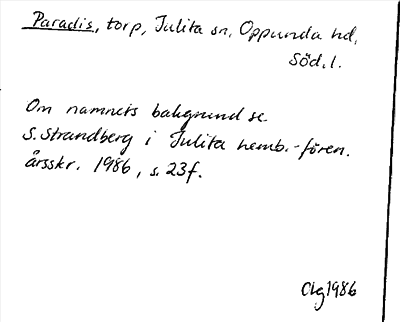 Paradis, torp, Julita sn, Oppunda hd,
Söd.l.
Om namnets bakgrund se
S. Strandberg i Julita hemb.-fören.
årsskr. 1986, s. 23f.
Chg 1986